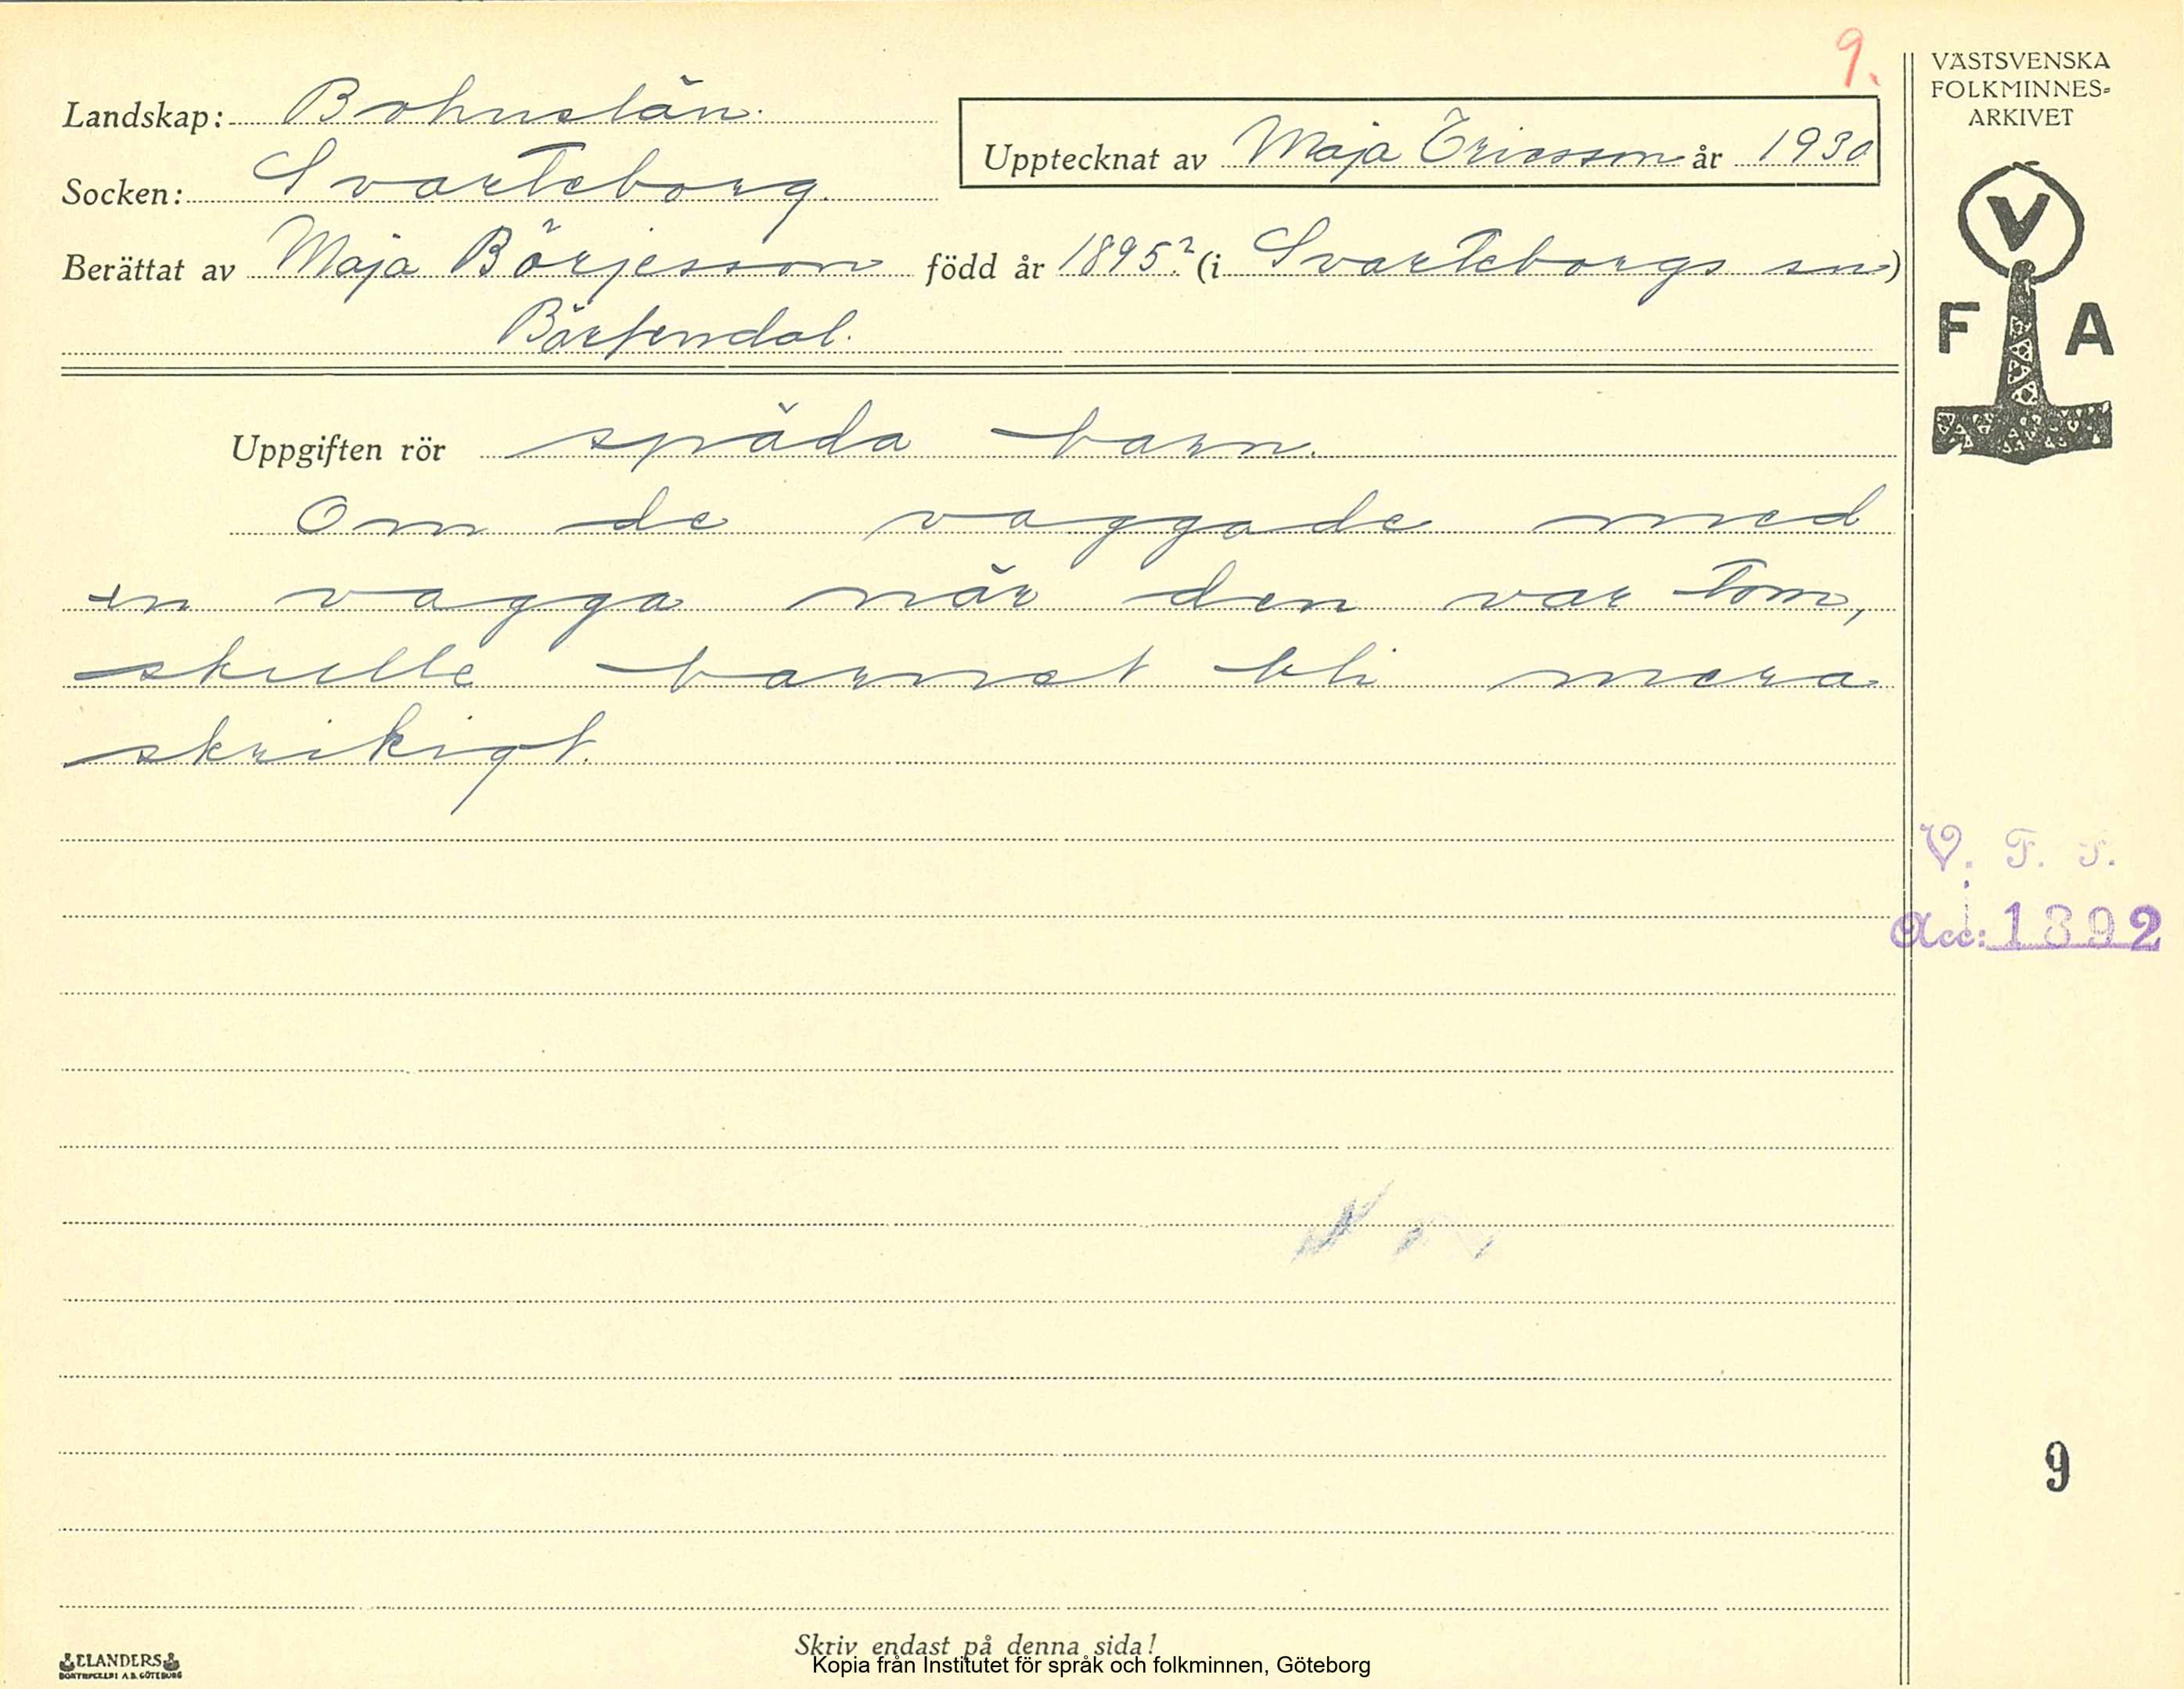 9.
VÄSTSVENSKA
FOLKMINNES=
ARKIVET
Landskap: Bohuslän.
Upptecknat av Maja Ericsson år 1930
Socken: Svarteborg.
Berättat av Maja Börjesson född år 1895? (i Svarteborgs sn)
Börfendal.
V
F A
Uppgiften rör späda barn.
Om de vaggade med
en vagga när den var tom,
skulle barnet bli mera
skrikigt.
V. F. F.
Acc: 1892
9
Skriv endast på denna sida!
ELANDERS
BOKTRYCKERI A.B. GÖTEBORG
Kopia från Institutet för språk och folkminnen, Göteborg